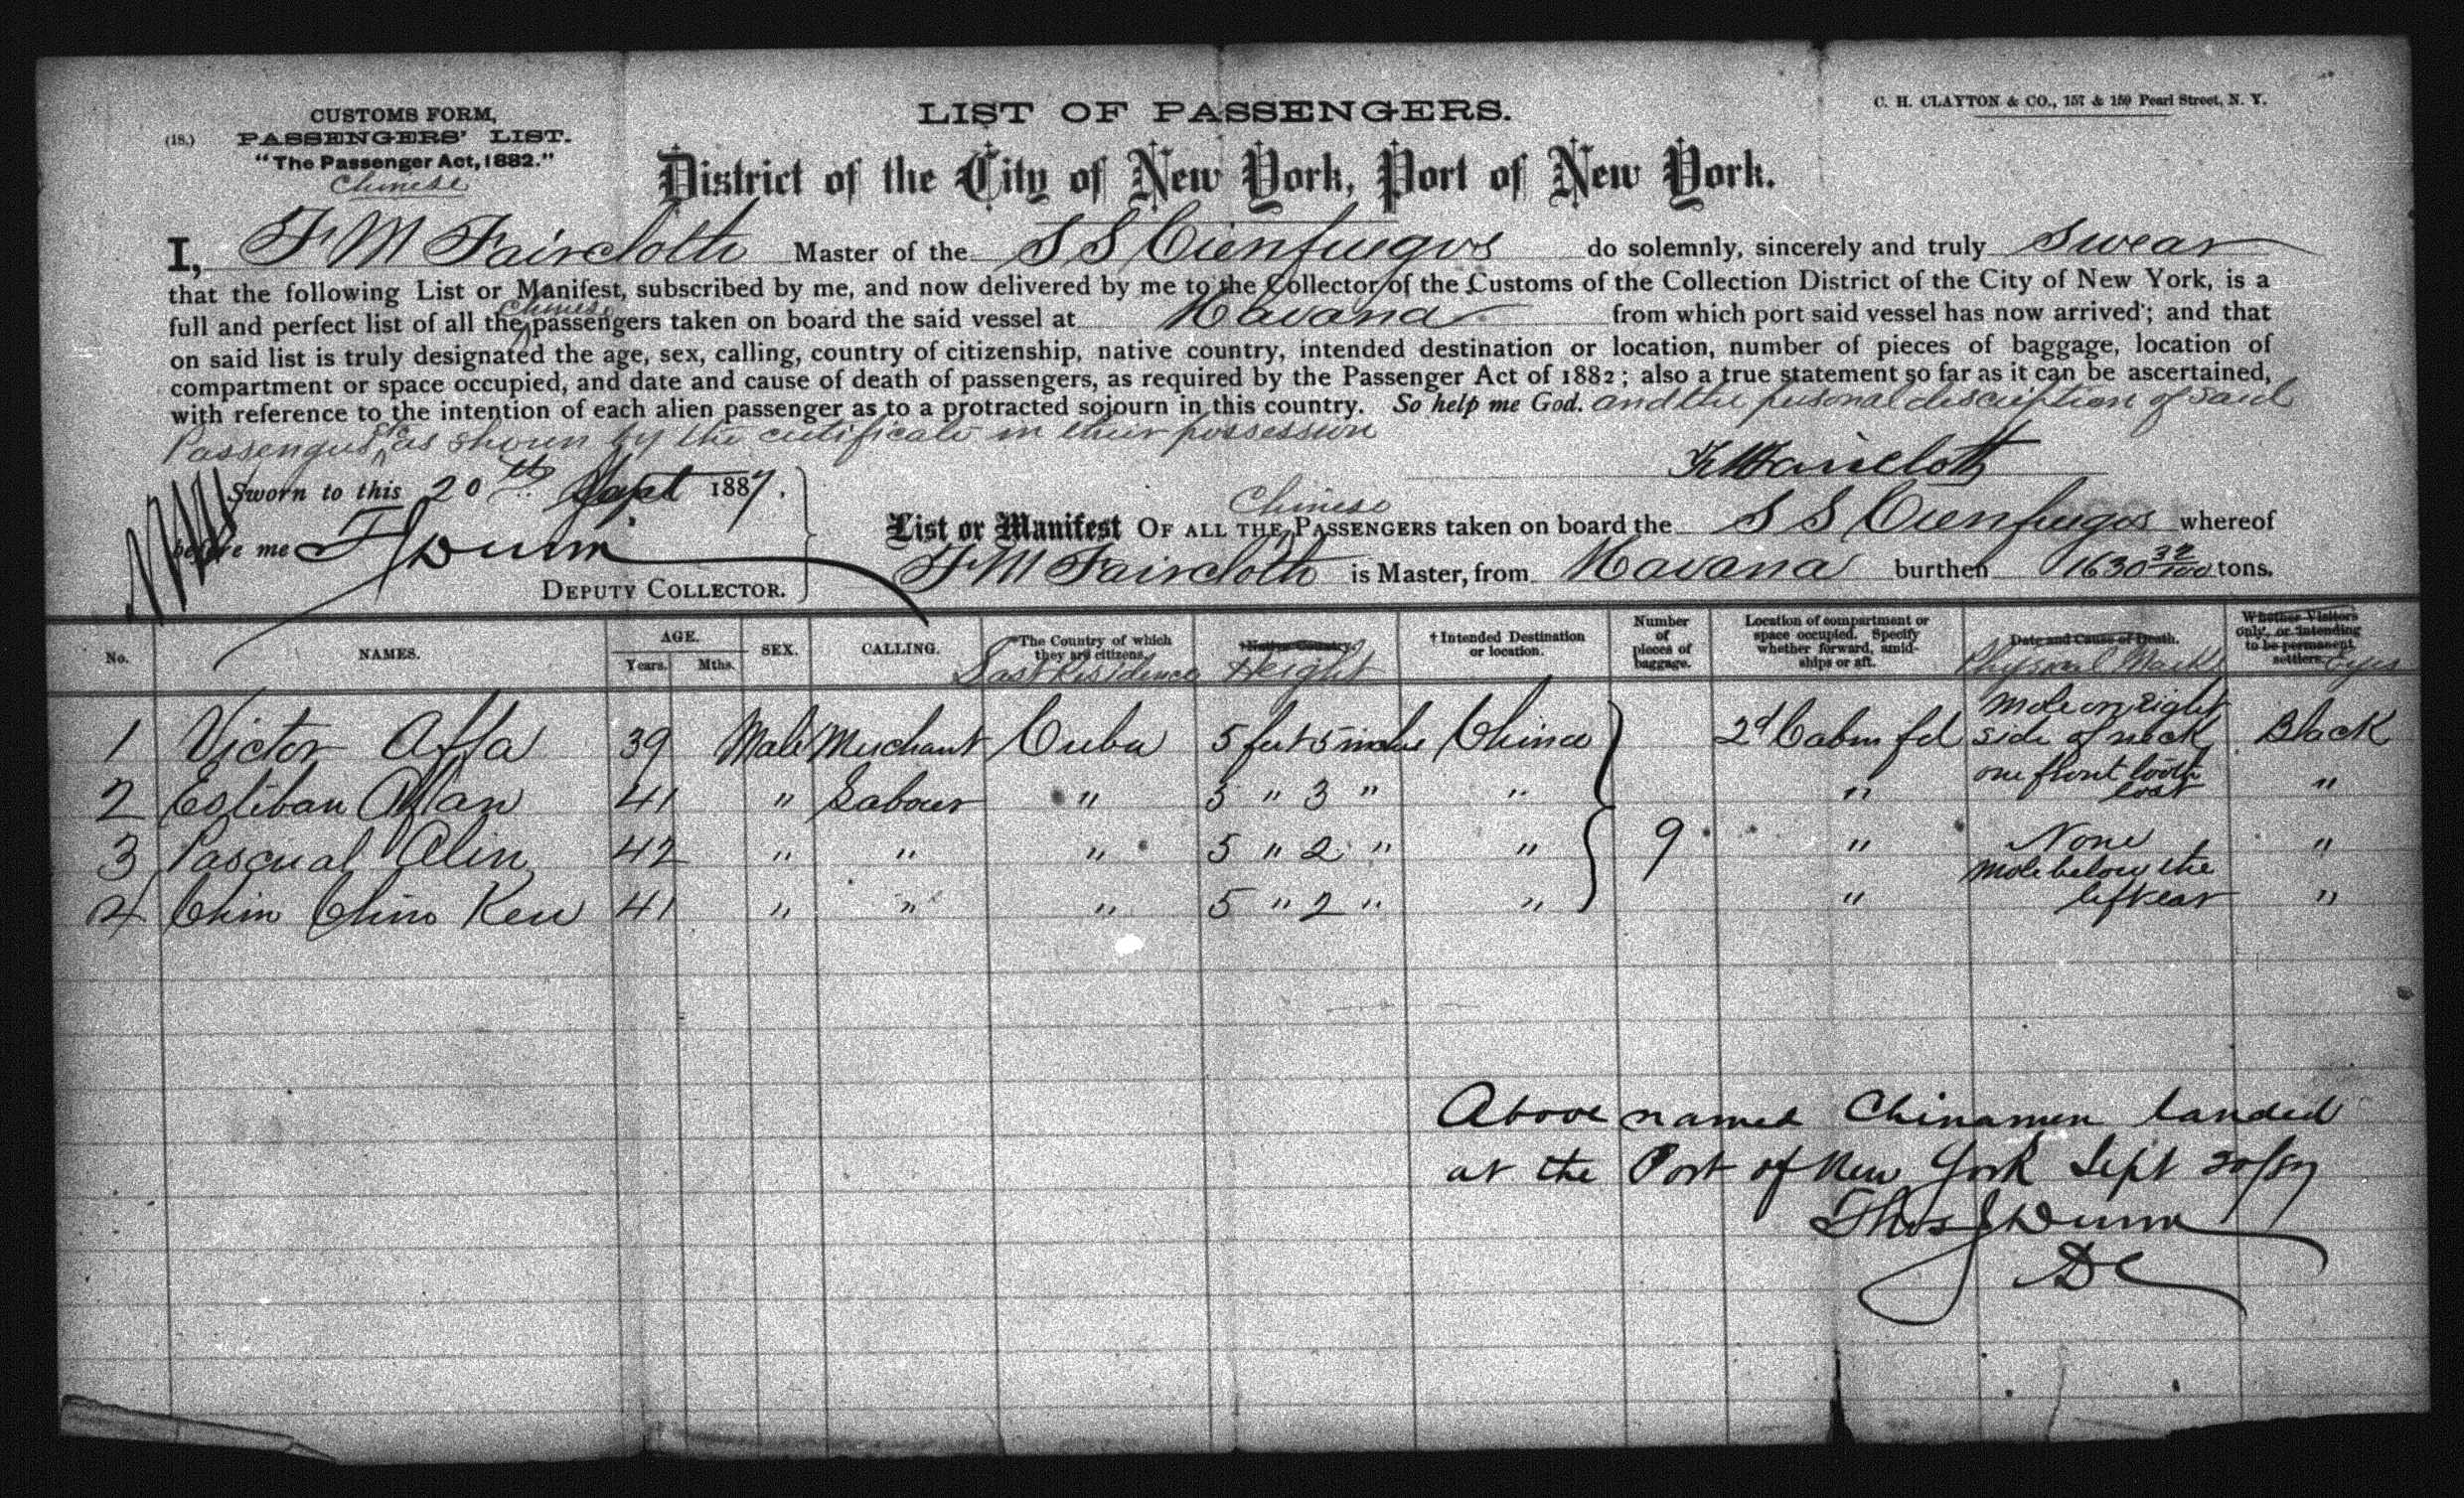 CUSTOMS FORM,
(18.) PASSENGERS' LIST.
"The Passenger Act, 1882."
Chinese
LIST OF PASSENGERS.
C. H. CLAYTON & CO., 157 & 159 Pearl Street, N. Y.
District of the City of New York, Port of New York.
I, F M Faircloth Master of the S S Cienfuegos do solemnly, sincerely and truly swear
that the following List or Manifest, subscribed by me, and now delivered by me to the Collector of the Customs of the Collection District of the City of New York, is a
full and perfect list of all the Chinese passengers taken on board the said vessel at Havana from which port said vessel has now arrived; and that
on said list is truly designated the age, sex, calling, country of citizenship, native country, intended destination or location, number of pieces of baggage, location of
compartment or space occupied, and date and cause of death of passengers, as required by the Passenger Act of 1882; also a true statement so far as it can be ascertained,
with reference to the intention of each alien passenger as to a protracted sojourn in this country. So help me God. and the personal description of said
Passengers etc as shown by the certificate in their possession
F M Faircloth
Sworn to this 20th Sept 1887.
before me T J Dunn
DEPUTY COLLECTOR.
List or Manifest OF ALL THE Chinese PASSENGERS taken on board the S S Cienfuegos whereof
F M Faircloth is Master, from Havana burthen 1630 32/100 tons.
No. NAMES. AGE. Years. Mths. SEX. CALLING. *The Country of which they are citizens. Last Residence *Native Country. Height † Intended Destination or location. Number of pieces of baggage. Location of compartment or space occupied. Specify whether forward, amidships or aft. Date and Cause of Death. Physical Marks Whether Visitors only, or intending to be permanent settlers. Eyes
1 Victor Affa 39 Male Merchant Cuba 5 feet 5 inches China 2d Cabin fd Mole on right side of neck Black
2 Esteban Affan 41 " Labour " 5 " 3 " " " one front tooth lost "
3 Pascual Alin 42 " " " 5 " 2 " " 9 " None "
4 Chin Chin Ken 41 " " " 5 " 2 " " " Mole below the left ear "
Above named Chinamen landed
at the Port of New York Sept 20/87
Thos J Dunn
D C